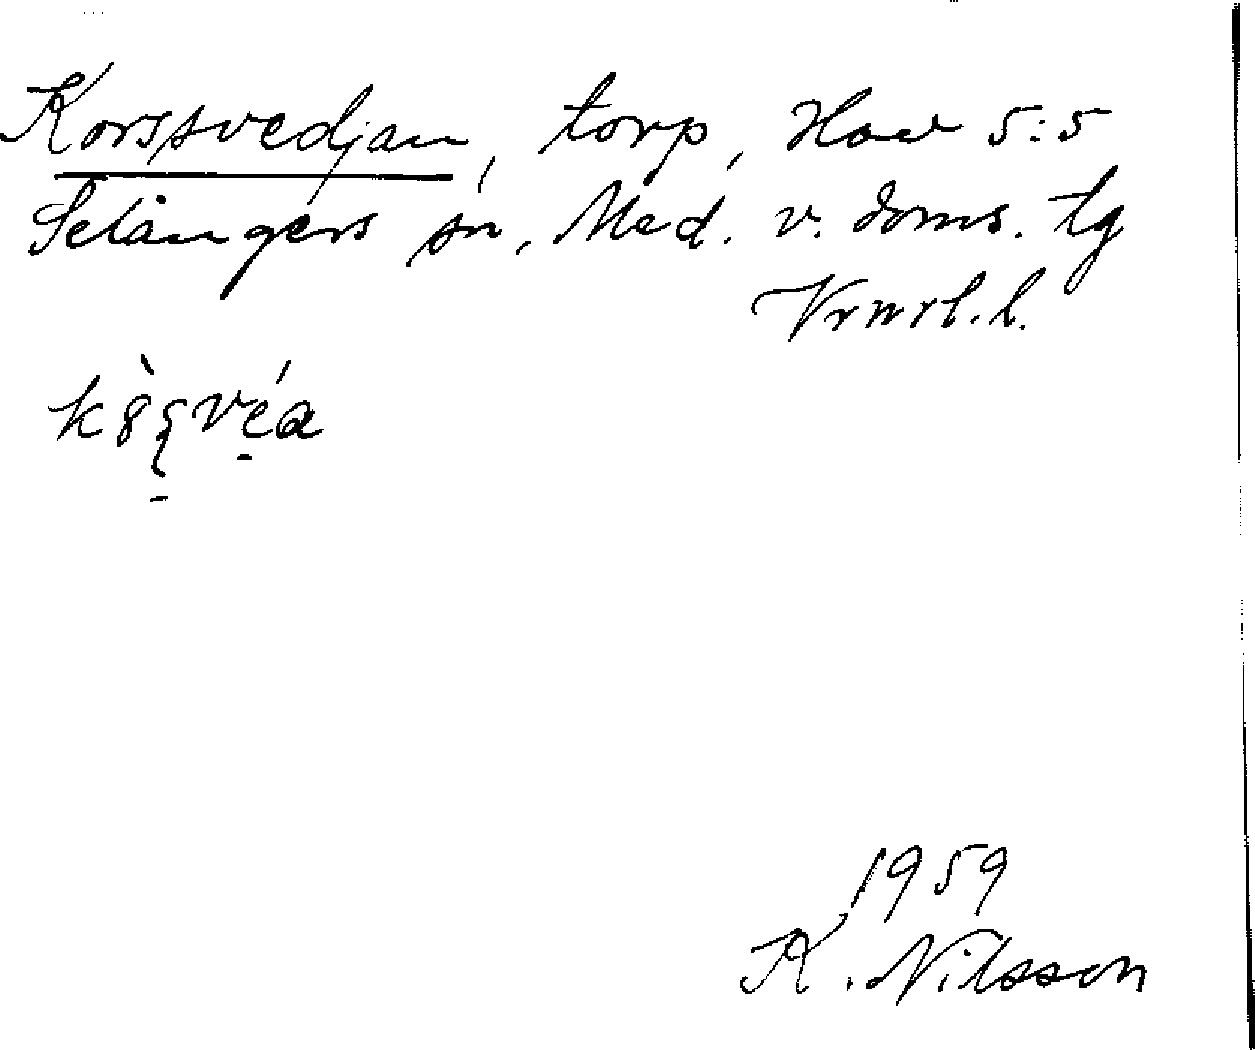 Korssvedjan, torp, Hov 5:5
Selångers sn, Med. v. doms. tg
Vrnrl. l.
1959
K. Nilsson